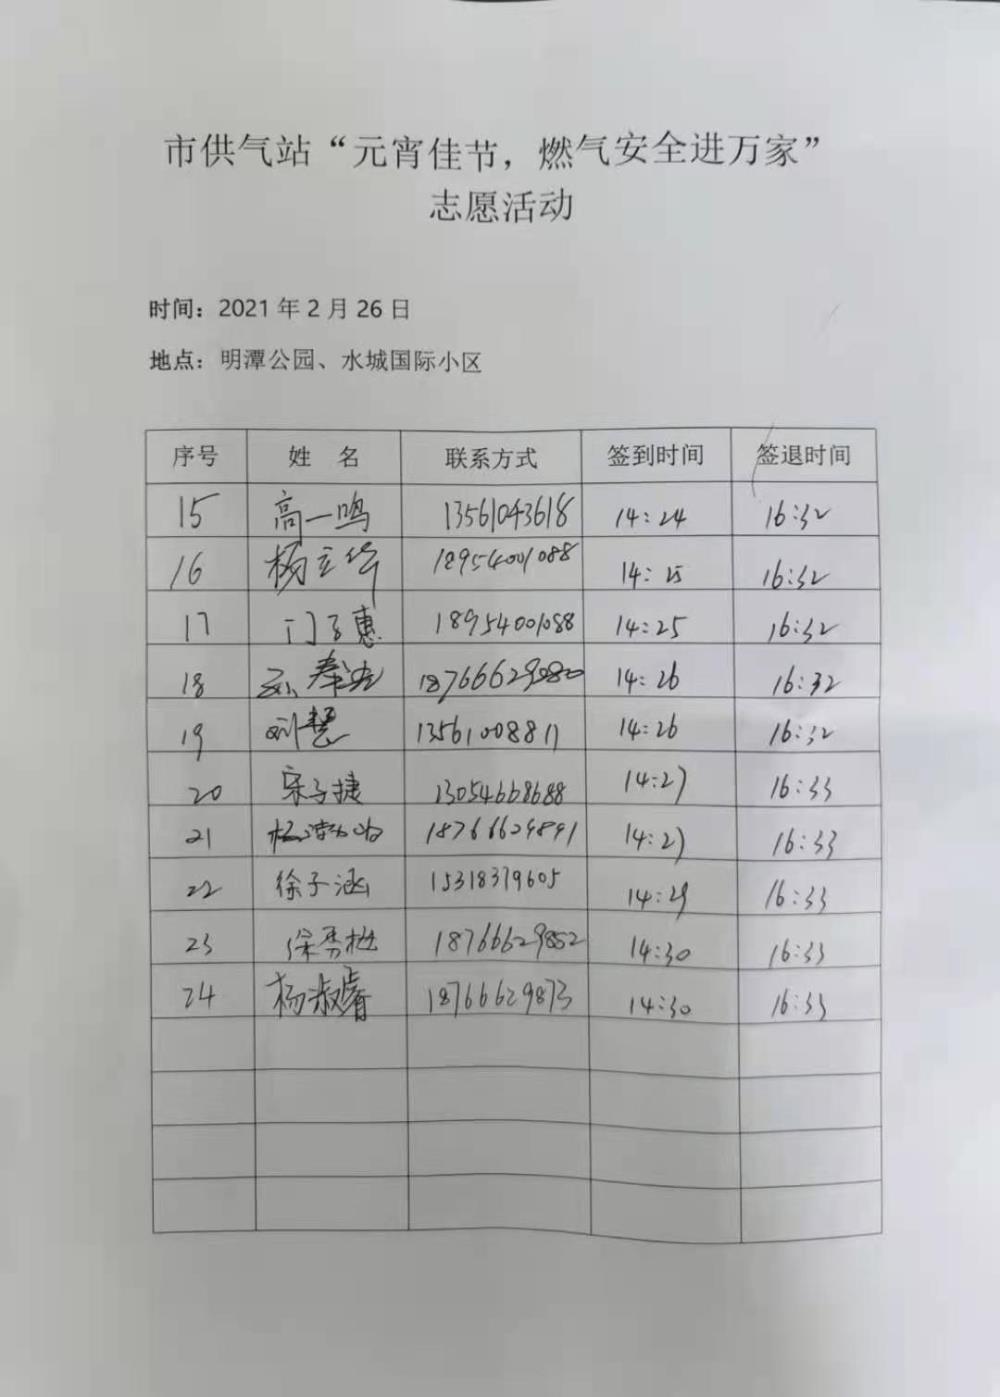 市供气站“元宵佳节，燃气安全进万家”
志愿活动
时间：2021 年 2 月 26 日
地点：明潭公园、水城国际小区
序号 姓 名 联系方式 签到时间 签退时间
15 高一鸣 13561043618 14:24 16:32
16 杨立华 18954001088 14:25 16:32
17 门子惠 18954001088 14:25 16:32
18 孙奉 18766629080 14:26 16:32
19 刘慧 13561008811 14:26 16:32
20 宋子捷 13054668688 14:27 16:33
21 杨 18766629891 14:27 16:33
22 徐子涵 15318379605 14:29 16:33
23 徐秀 18766629852 14:30 16:33
24 杨淑睿 18766629873 14:30 16:33